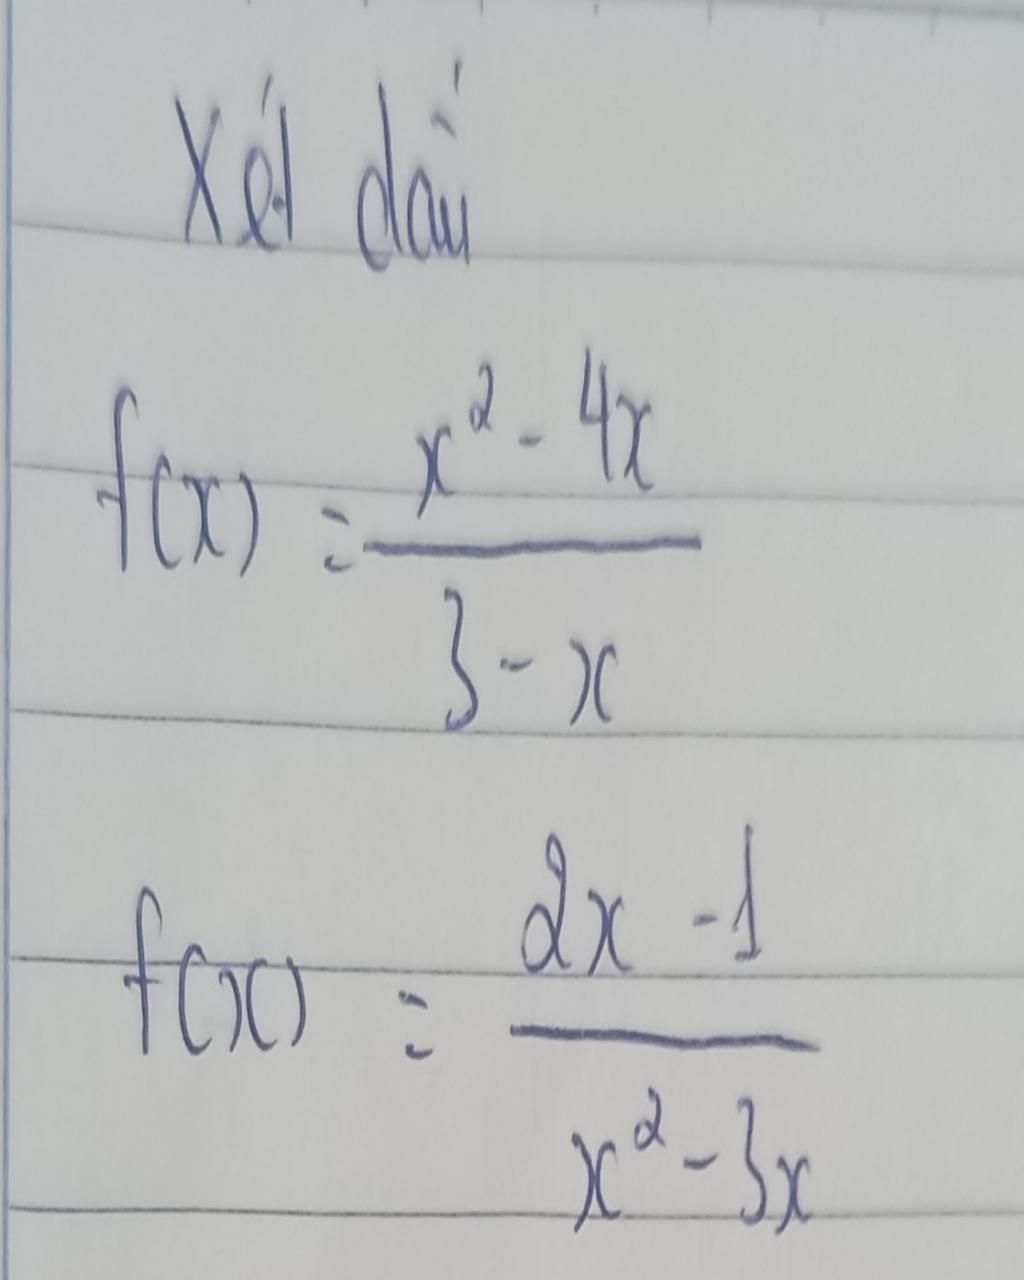 Xét dấu
f(x) = x² - 4x / 3 - x
f(x) = 2x - 1 / x² - 3x